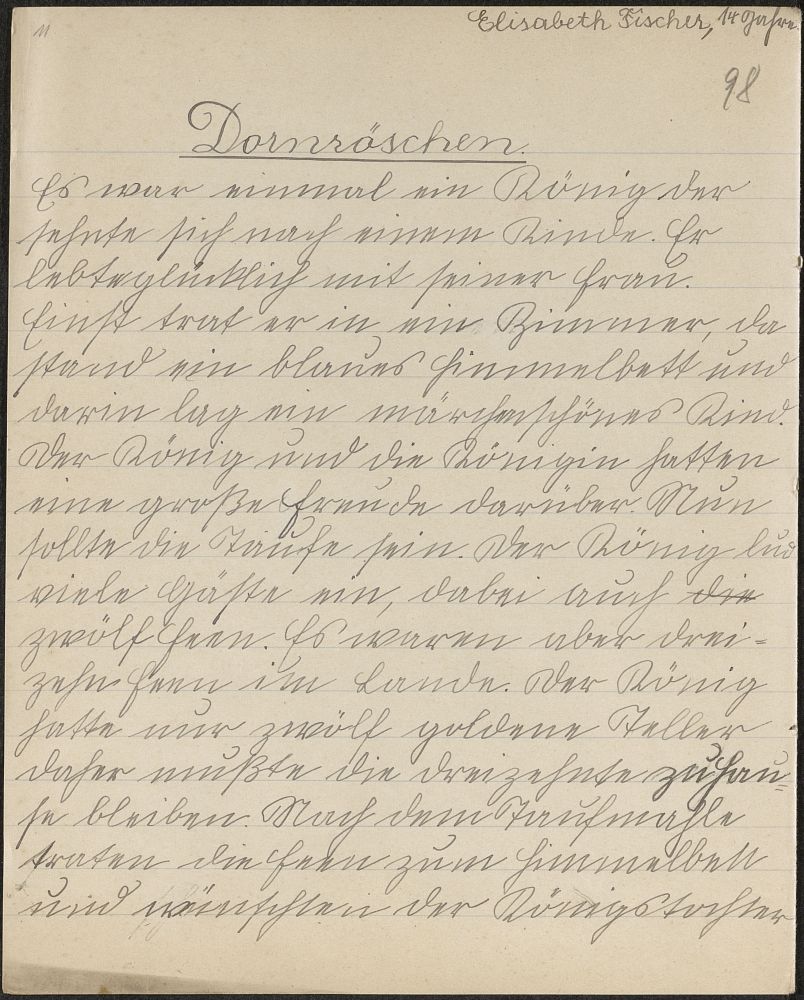 11
Elisabeth Fischer, 14 Jahre.
98
Dornröschen.
Es war einmal ein König der
sehnte sich nach einem Kinde. Er
lebte glücklich mit seiner Frau.
Einst trat er in ein Zimmer, da
stand ein blaues Himmelbett und
darin lag ein märchenschönes Kind.
Der König und die Königin hatten
eine große Freude darüber. Nun
sollte die Taufe sein. Der König lud
viele Gäste ein, dabei auch die
zwölf Feen. Es waren aber drei-
zehn Feen im Lande. Der König
hatte nur zwölf goldene Teller
daher mußte die dreizehnte zuhau-
se bleiben. Nach dem Taufmahle
traten die Feen zum Himmelbett
und wünschten der Königstochter